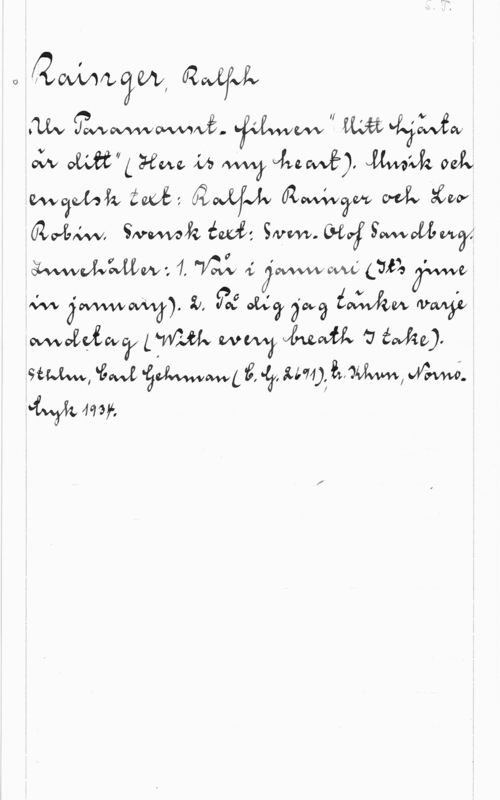 S. T.
Rainger, Ralph
Ur Paramount-filmen "Mitt hjärta
är ditt" (Here is my heart). Musik och
engelsk text: Ralph Rainger och Leo
Robin. Svensk text: Sven-Olof Sandberg.
Innehåller: 1. Vår i januari (It's june
in january). 2. På dig jag tänker varje
andetag (With every breath I take).
Sthlm, Carl Gehrman (C. G. 2691), tr. Khvn, Nornö.
tryk 1934.